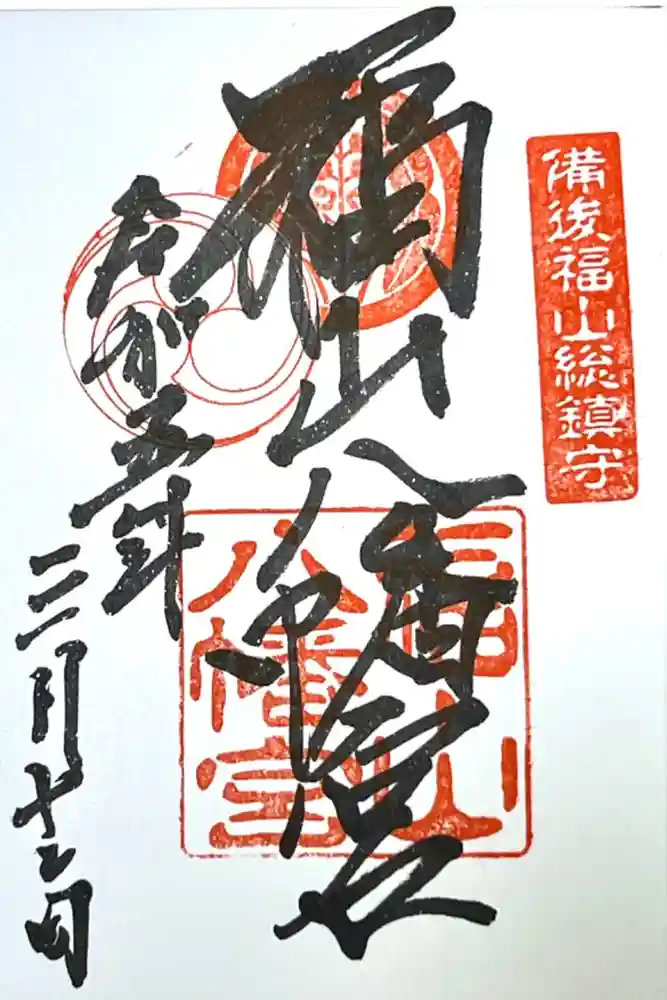 備後福山総鎮守
福山八幡宮
福山
八幡宮
令和五年
三月十二日